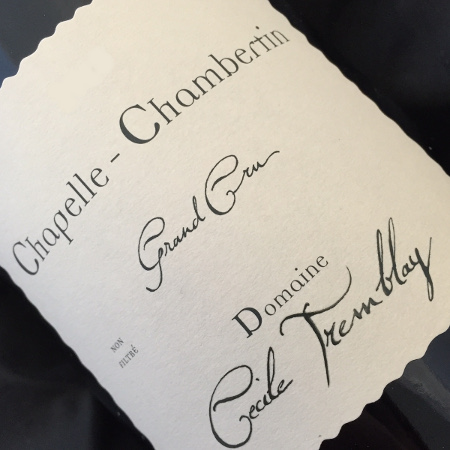 Chapelle - Chambertin
Grand Cru
NON
FILTRÉ
Domaine
Cécile Tremblay